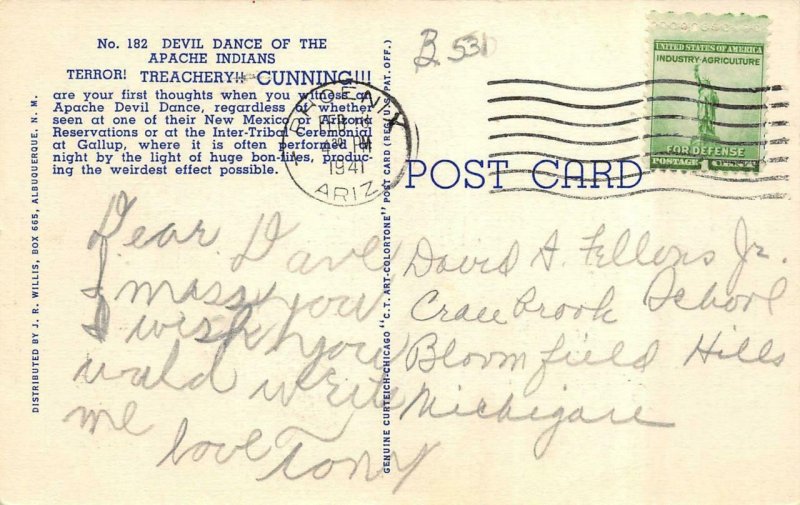 No. 182 DEVIL DANCE OF THE
APACHE INDIANS
TERROR! TREACHERY!! CUNNING!!!
are your first thoughts when you witness an
Apache Devil Dance, regardless of whether
seen at one of their New Mexico or Arizona
Reservations or at the Inter-Tribal Ceremonial
at Gallup, where it is often performed at
night by the light of huge bon-fires, produc-
ing the weirdest effect possible.
DISTRIBUTED BY J. R. WILLIS, BOX 665, ALBUQUERQUE, N. M.
GENUINE CURTEICH-CHICAGO "C.T. ART-COLORTONE" POST CARD (REG. U.S. PAT. OFF.)
B 531
PHOENIX
FEB
430 PM
1941
ARIZ.
UNITED STATES OF AMERICA
INDUSTRY-AGRICULTURE
FOR DEFENSE
POSTAGE 1 CENT
POST CARD
Dear Dave
I mass you
I wish you
wald write
me
love Tony
David A. Fellows Jr.
Crane Brook School
Bloomfield Hills
Michigan